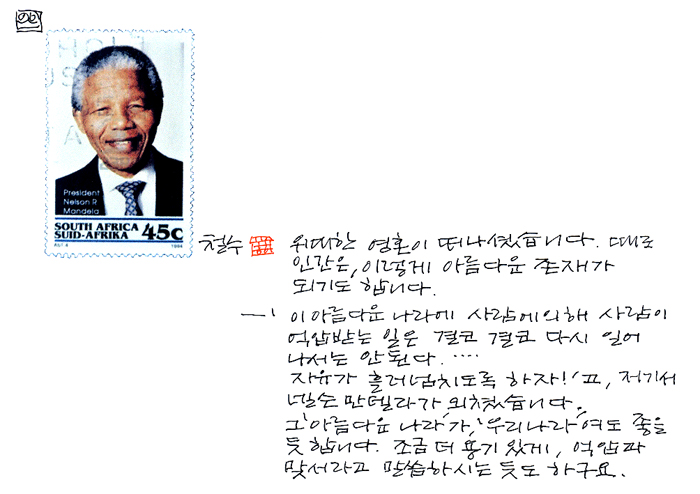 President
Nelson R
Mandela
SOUTH AFRICA
SUID-AFRIKA 45c
1994
철수
위대한 영혼이 떠나셨습니다. 때로
인간은, 이렇게 아름다운 존재가
되기도 합니다.
―' 이 아름다운 나라에 사람에 의해 사람이
억압받는 일은 결코 결코 다시 일어
나서는 안된다. ‥‥
자유가 흘러넘치도록 하자!'고, 저기서
넬슨 만델라가 외쳤습니다.
그'아름다운 나라'가, '우리나라'여도 좋을
듯합니다. 조금 더 용기 있게, 억압과
맞서라고 말씀하시는 듯도 하구요.